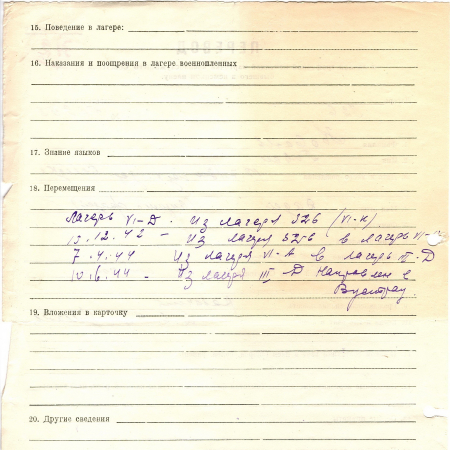 15. Поведение в лагере:
16. Наказания и поощрения в лагере военнопленных
17. Знание языков
18. Перемещения
Лагерь VI-D. Из лагеря 326 (VI-K)
15.12.42 - Из лагеря 326 в лагерь
7.4.44 Из лагеря VI-A в лагерь -D
10.6.44 - Из лагеря III-D Направлен в
19. Вложения в карточку
20. Другие сведения